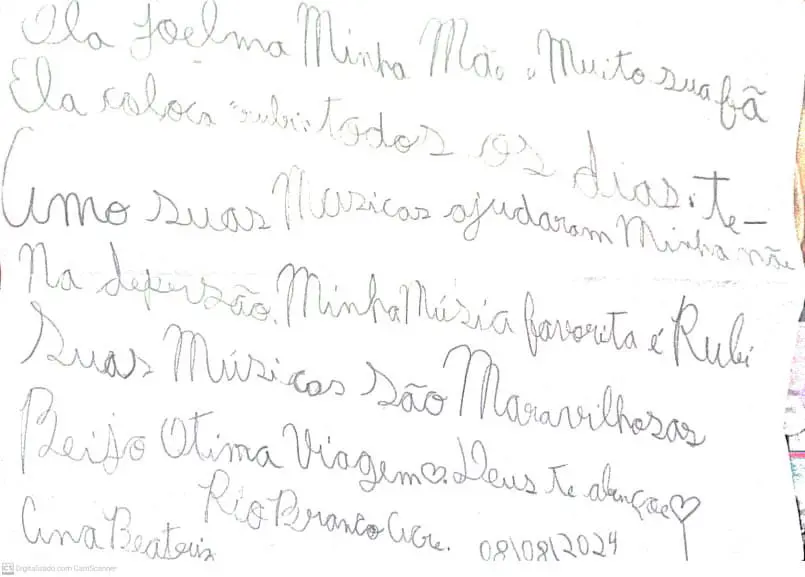 Ola Joelma Minha Mãe é Muito sua fã
Ela coloca "rubi" todos os dias. te-
Amo suas Musicas ajudaram Minha mãe
Na depersão. Minha Músia favorita é Rubi
Suas Músicas são Maravilhosas
Beijo Otima Viagem♡. Deus te abençoe♡
Rio Branco Acre. 08\08\2024
Ana Beatriz
CS Digitalizado com CamScanner